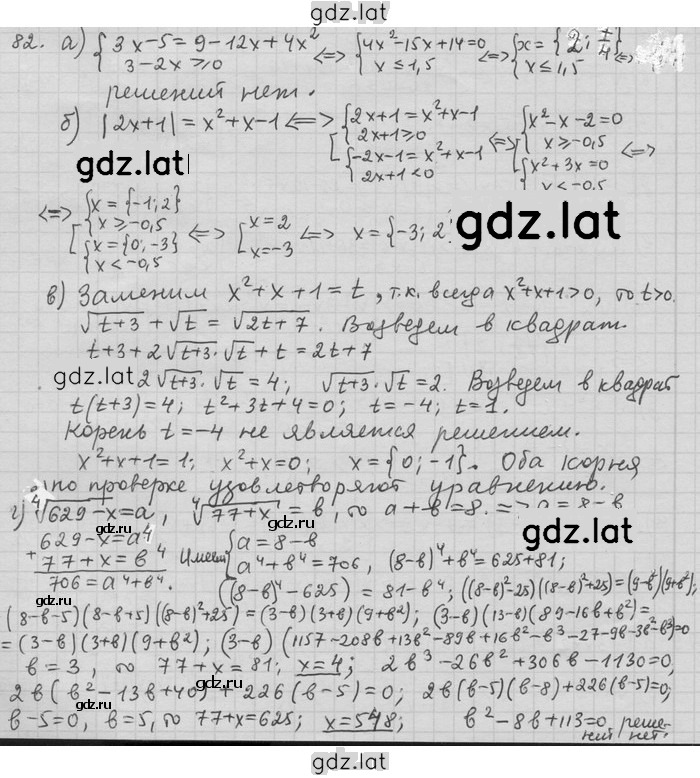 gdz.lat
82. а) { 3x-5=9-12x+4x² ⇔ { 4x²-15x+14=0 ⇔ { x={2; 7/4} ⇔
3-2x≥0 x≤1,5 x≤1,5
решений нет.
б) |2x+1|=x²+x-1 ⇔ [ { 2x+1=x²+x-1 ⇔ [ { x²-x-2=0 ⇔
2x+1≥0 x≥-0,5
{ -2x-1=x²+x-1 { x²+3x=0
2x+1<0 x<-0,5
gdz.lat
⇔ [ { x={-1;2} ⇔ [ x=2 ⇔ x={-3; 2
x≥-0,5 x=-3
{ x={0;-3}
x<-0,5
gdz.lat
в) Заменим x²+x+1=t, т.к. всегда x²+x+1>0, то t>0.
√t+3 + √t = √2t+7. Возведем в квадрат.
t+3+2√t+3·√t+t=2t+7
gdz.lat 2√t+3·√t=4; √t+3·√t=2. Возведем в квадрат
t(t+3)=4; t²+3t+4=0; t=-4; t=1.
Корень t=-4 не является решением.
x²+x+1=1; x²+x=0; x={0;-1}. Оба корня
по проверке удовлетворяют уравнению.
г) ⁴√629-x=a, ⁴√77+x=в, то a+в=8. => a=8-в
629-x=a⁴
+ 77+x=в⁴ Имеем { a=8-в
706=a⁴+в⁴. a⁴+в⁴=706, (8-в)⁴+в⁴=625+81;
((8-в)⁴-625)=81-в⁴; ((8-в)²-25)((8-в)²+25)=(9-в²)(9+в²);
(8-в-5)(8-в+5)((8-в)²+25)=(3-в)(3+в)(9+в²); (3-в)(13-в)(89-16в+в²)=
=(3-в)(3+в)(9+в²); (3-в)(1157-208в+13в²-89в+16в²-в³-27-9в-3в²-в³)=0
в=3, то 77+x=81; x=4; 2в³-26в²+306в-1130=0;
2в(в²-13в+40)+226(в-5)=0; 2в(в-5)(в-8)+226(в-5)=0;
в-5=0, в=5, то 77+x=625; x=548; в²-8в+113=0, решений нет.
gdz.lat